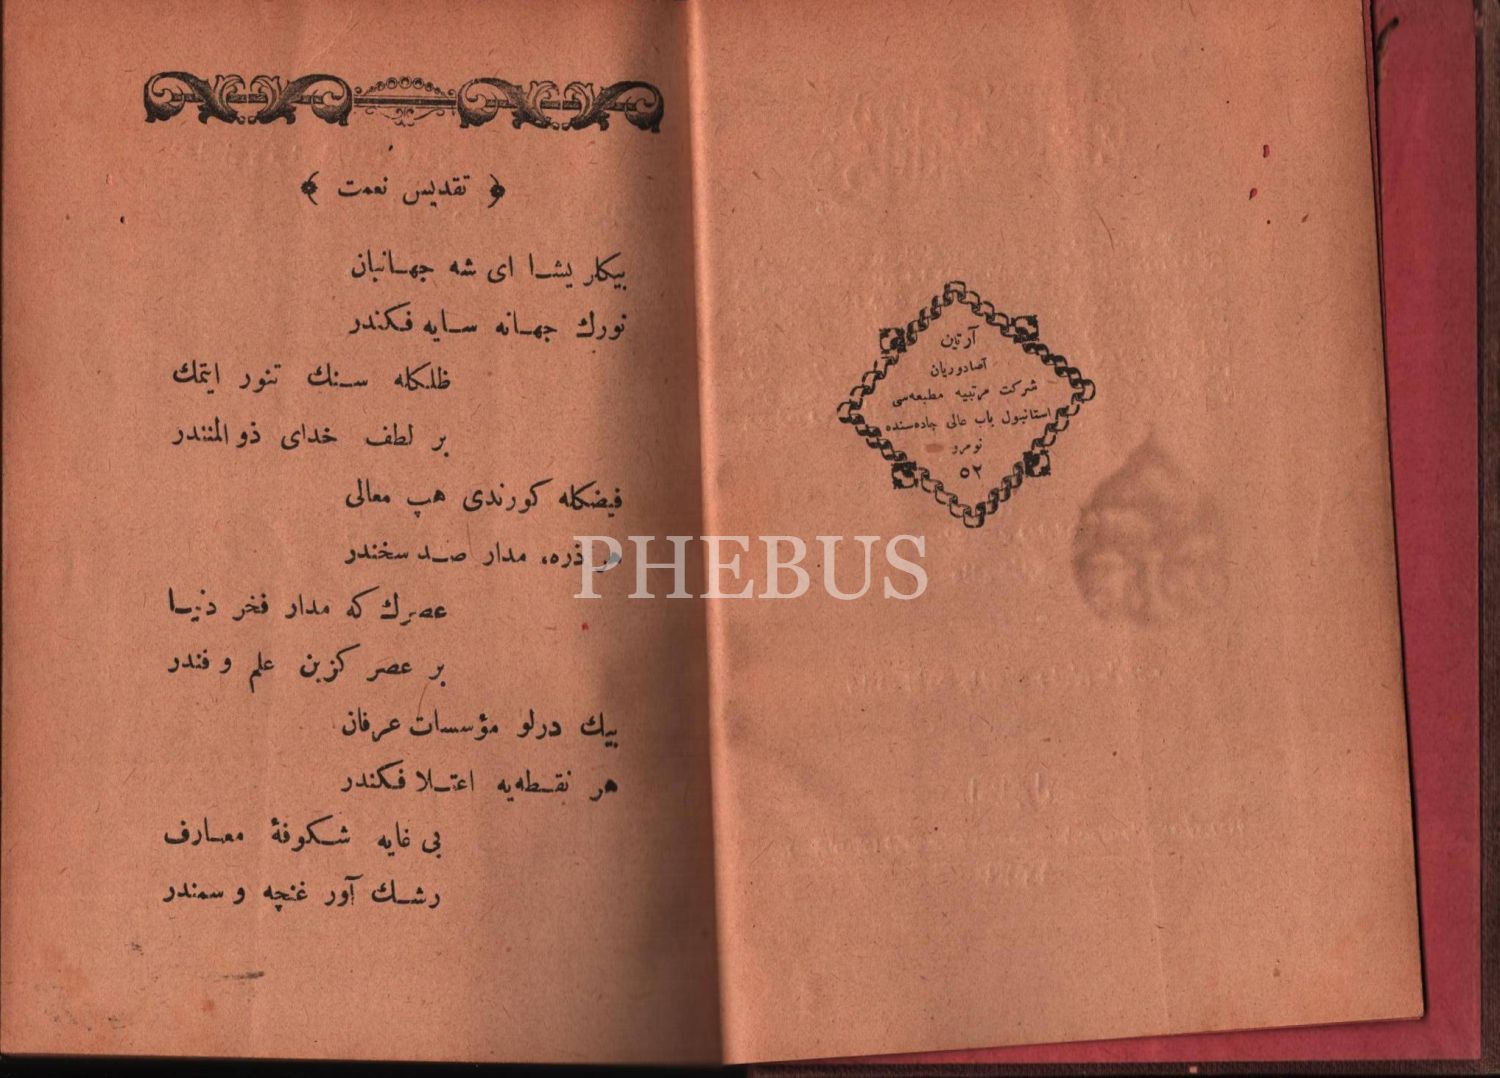 آرتين
آصادوريان
شركت مرتبيه مطبعه‌سی
استانبول باب عالی جاده‌سنده
نومرو
٥٢
﴿ تقديس نعمت ﴾
بيكلر يشا ای شه جهانبان
نورك جهانه سايه فكندر
ظلكله سنك تنور ايتمك
بر لطف خدای ذوالمنندر
فيضكله كورندی هپ معالی
هر ذره، مدار صد سخندر
عصرك كه مدار فخر دنيا
بر عصر كزين علم و فندر
بيك درلو مؤسسات عرفان
هر نقطه‌يه اعتلا فكندر
بی غايه شكوفهٔ معارف
رشك آور غنچه و سمندر
PHEBUS